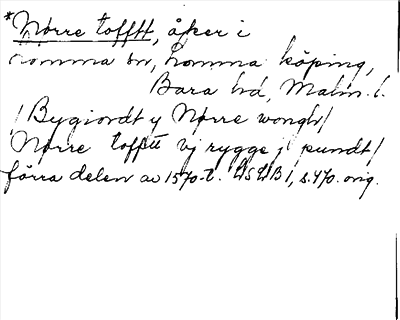 *Nørre tofftt, åker i
Lomma sn, Lomma köping,
Bara hd, Malm. l.
/ Bygiordt y Nørre wongh/
Nørre tofftt vj rygge j pundt/
förra delen av 1570-t. LSLB 1, s. 470. orig.